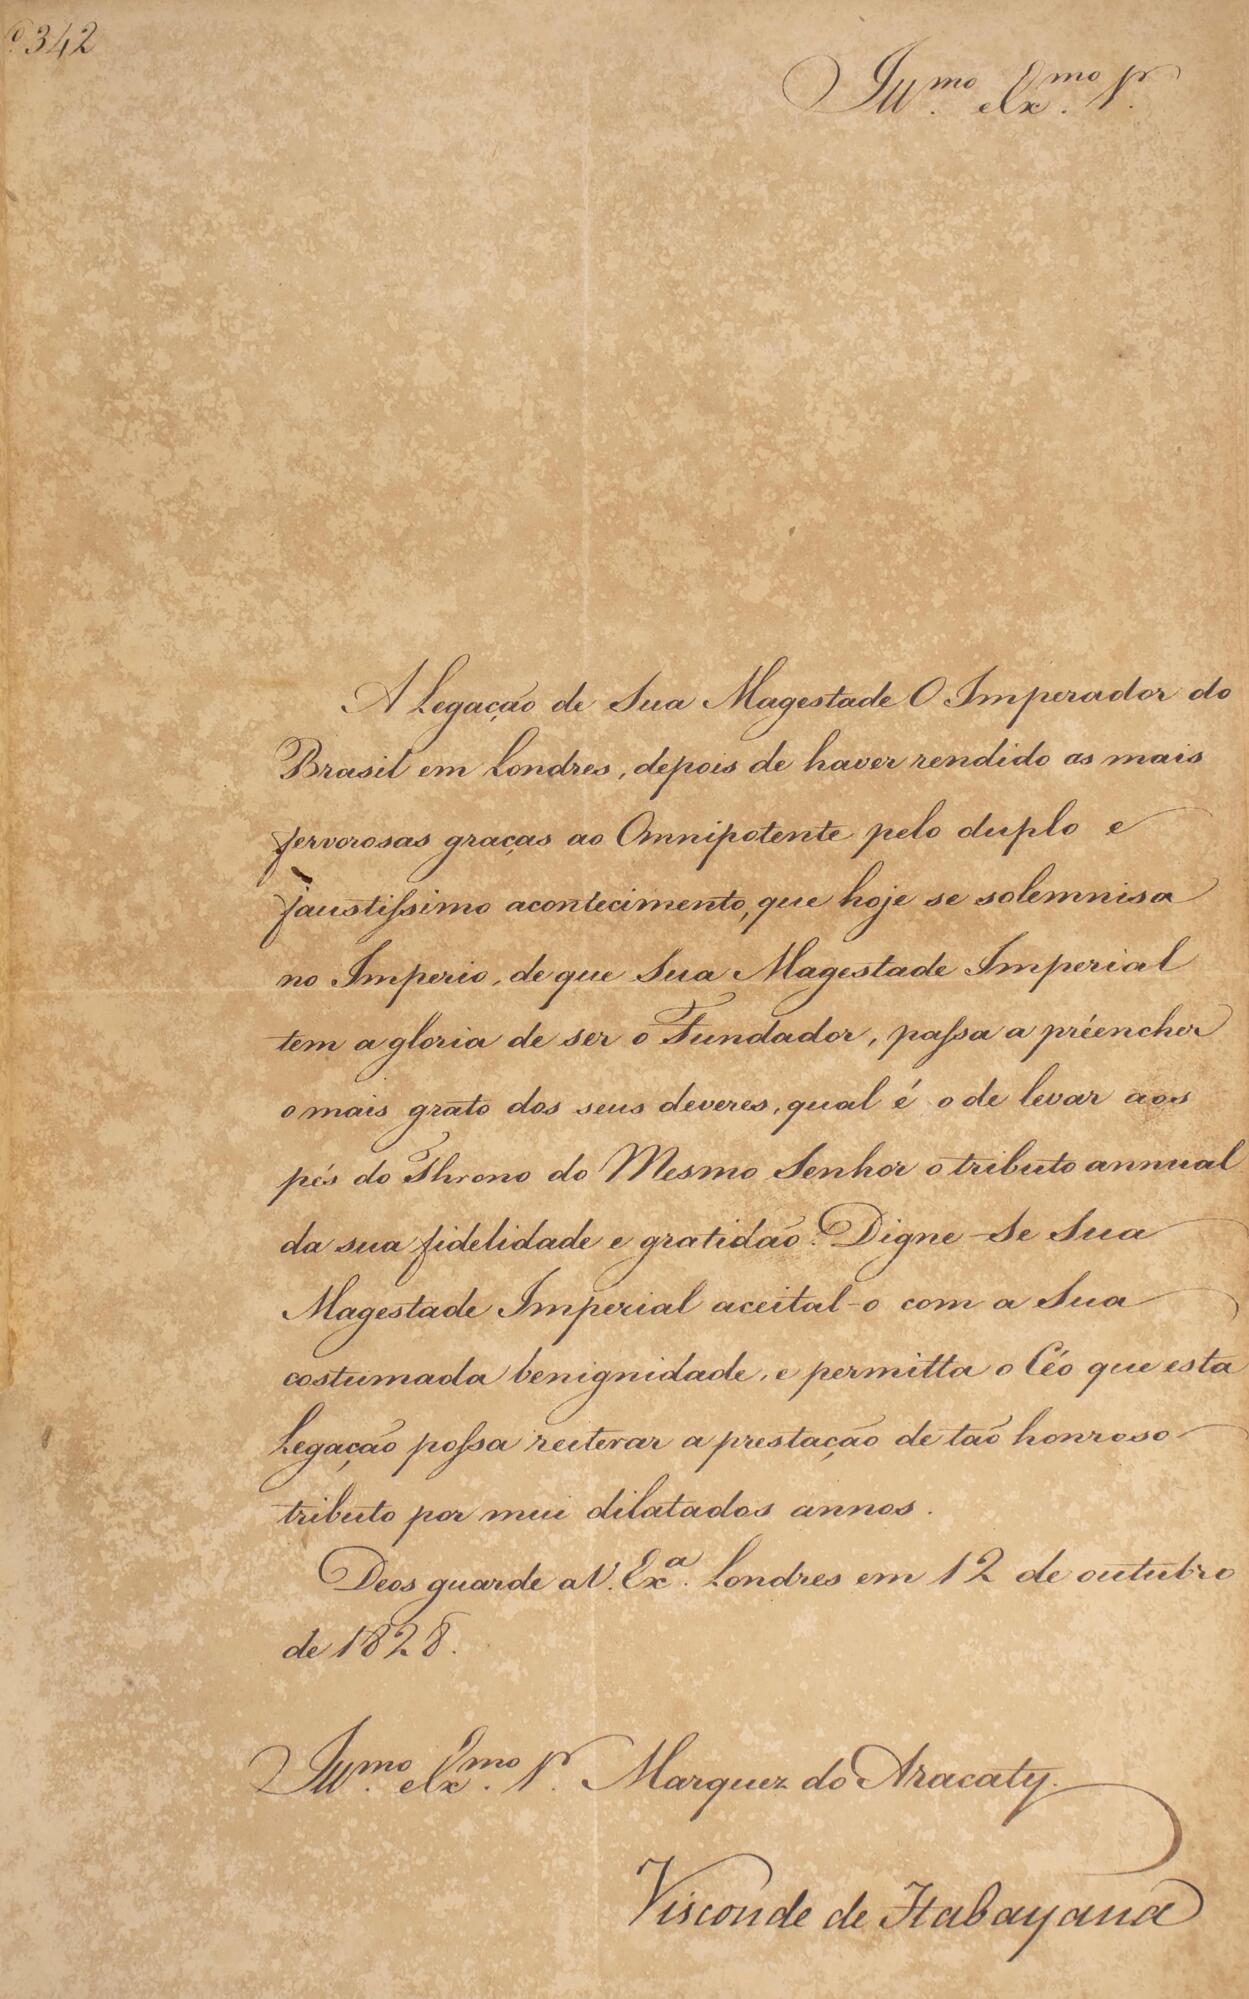 º 342
Illmo. e Exmo. Sr.
A Legação de Sua Magestade O Imperador do
Brasil em Londres, depois de haver rendido as mais
fervorosas graças ao Omnipotente pelo duplo e
faustissimo acontecimento, que hoje se solemnisa
no Imperio, de que Sua Magestade Imperial
tem a gloria de ser o Fundador, passa a préencher
o mais grato dos seus deveres, qual é o de levar aos
pés do Throno do Mesmo Senhor o tributo annual
da sua fidelidade e gratidão. Digne-Se Sua
Magestade Imperial aceital-o com a Sua
costumada benignidade, e permitta o Céo que esta
Legação possa reiterar a prestação de tão honroso
tributo por mui dilatados annos.
Deos guarde a V. Exa. Londres em 12 de outubro
de 1828.
Illmo. e Exmo. Sr. Marquez do Aracaty.
Visconde de Itabayana